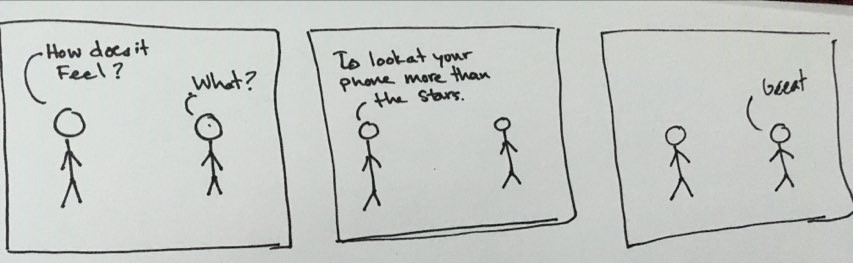 How does it
Feel?
What?
To look at your
phone more than
the stars.
Great